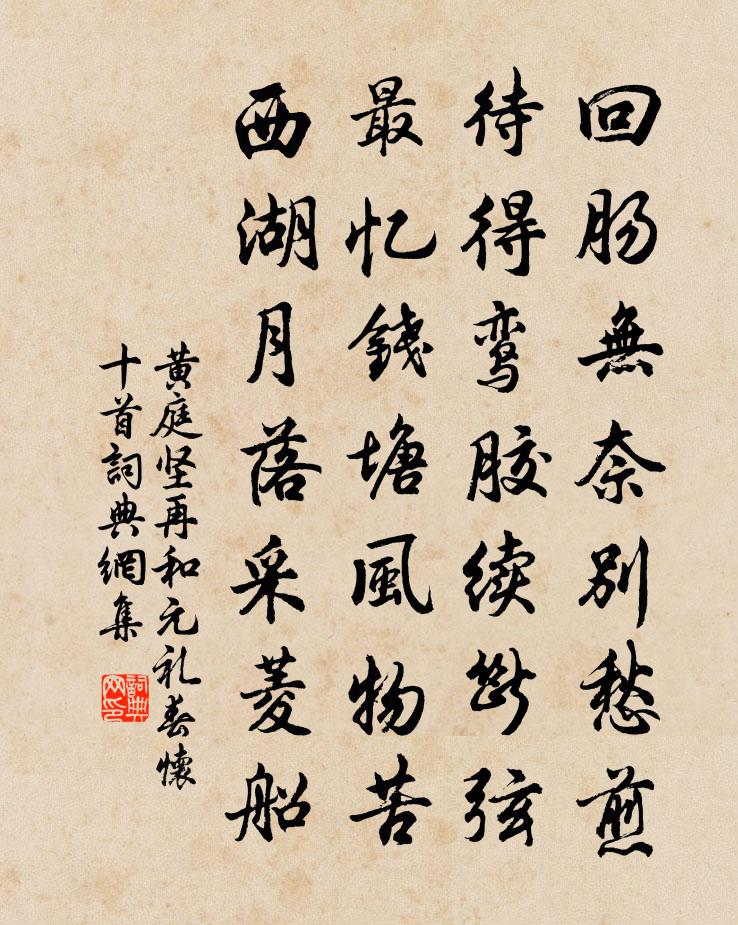 回肠無奈別愁煎
待得鸾胶续断弦
最忆錢塘風物苦
西湖月落采菱船
黄庭坚再和元礼春懷
十首詞典網集
詞典网印